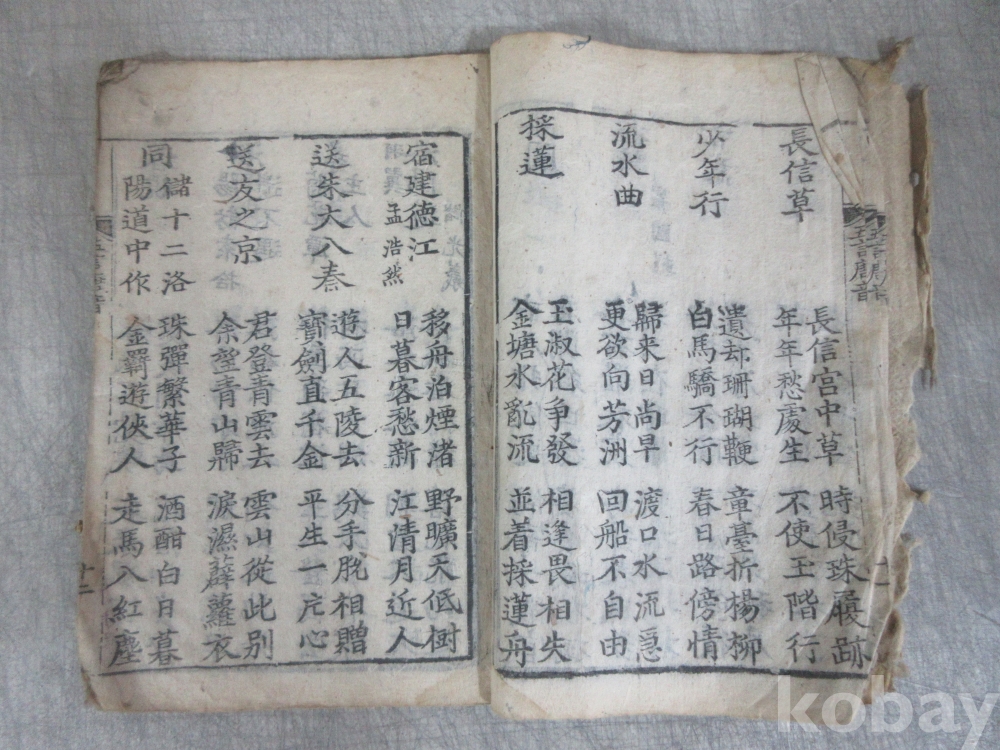 五言唐音
長信草
長信宮中草 時侵珠履跡
年年愁處生 不使玉階行
少年行
遺却珊瑚鞭 章臺折楊柳
白馬驕不行 春日路傍情
流水曲
歸来日尚早 渡口水流急
更欲向芳洲 回船不自由
採蓮
玉淑花争發 相逢畏相失
金塘水亂流 並着採蓮舟
宿建德江
孟浩然
移舟泊煙渚 野曠天低樹
日暮客愁新 江清月近人
送朱大入秦
遊人五陵去 分手脫相贈
寶劍直千金 平生一片心
送友之京
君登青雲去 雲山從此別
余望青山歸 淚濕薜蘿衣
同
儲十二洛
陽道中作
珠彈繁華子 酒酣白日暮
金羈遊俠人 走馬入紅塵
五言唐音
十二
kobay